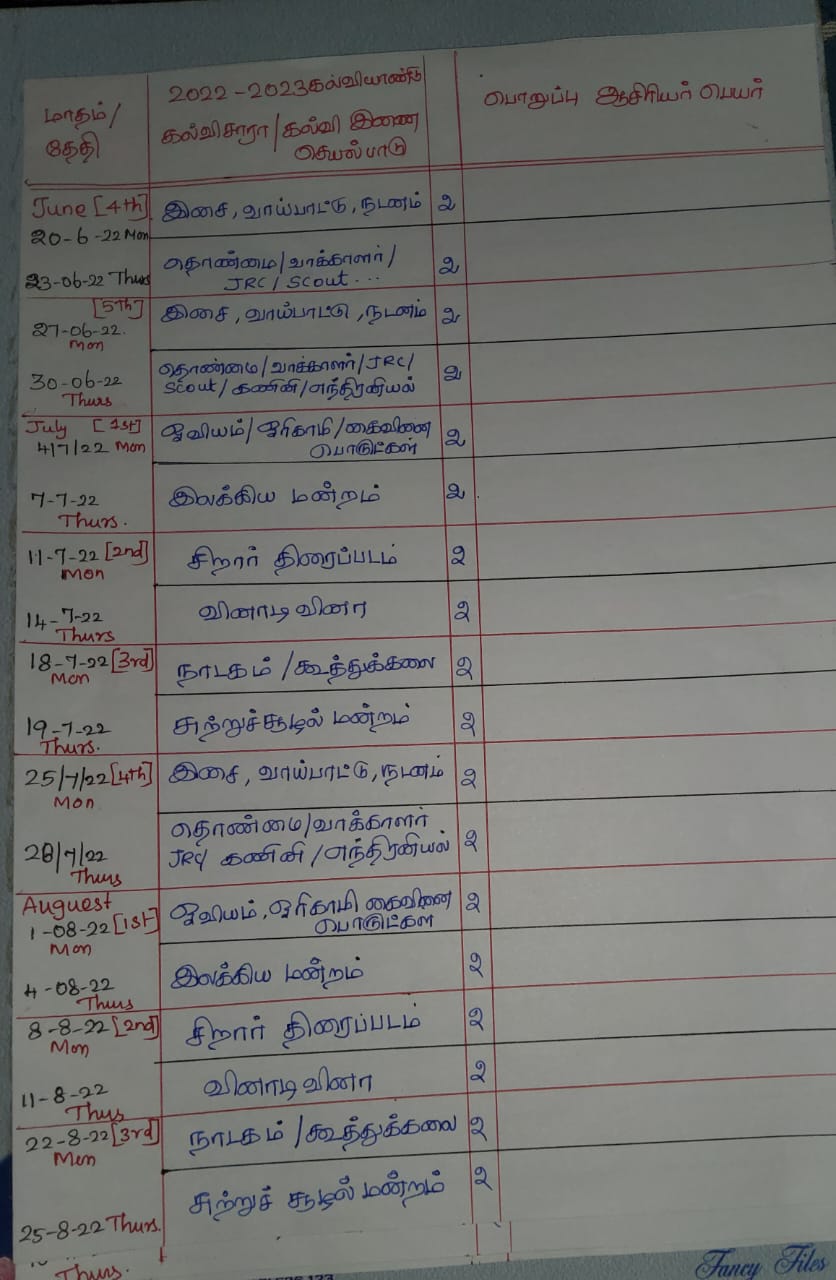 மாதம்/
தேதி
2022 - 2023 கல்வியாண்டு
கல்விசாரா / கல்வி இணை
செயல்பாடு
பொறுப்பு ஆசிரியர் பெயர்
June [4th]
20-6-22 Mon
இசை, வாய்பாட்டு, நடனம் 2
23-06-22 Thurs
தொண்மை/வாக்காளர்/
JRC/ Scout... 2
[5th]
27-06-22.
Mon
இசை, வாய்பாட்டு, நடனம் 2
30-06-22
Thurs
தொண்மை/வாக்காளர்/JRC/
Scout/கணினி/எந்திரனியல் 2
July [1st]
4/7/22 Mon
ஓவியம்/ஓரிகாமி/கைவினை
பொருட்கள் 2
7-7-22
Thurs.
இலக்கிய மன்றம் 2
11-7-22 [2nd]
Mon
சிறார் திரைப்படம் 2
14-7-22
Thurs
வினாடி வினா 2
18-7-22 [3rd]
Mon
நாடகம் /கூத்துக்கலை 2
19-7-22
Thurs.
சுற்றுச்சூழல் மன்றம் 2
25/7/22 [4th]
Mon
இசை, வாய்பாட்டு, நடனம் 2
28/7/22
Thurs
தொண்மை/வாக்காளர்
JRC/ கணினி /எந்திரனியல் 2
Auguest
1-08-22 [1st]
Mon
ஓவியம், ஓரிகாமி கைவினை
பொருட்கள் 2
4-08-22
Thurs
இலக்கிய மன்றம் 2
8-8-22 [2nd]
Mon
சிறார் திரைப்படம் 2
11-8-22
Thus
வினாடி வினா 2
22-8-22 [3rd]
Mon
நாடகம் /கூத்துக்கலை 2
25-8-22 Thurs.
சுற்றுச் சூழல் மன்றம் 2
Thurs.
Fancy Files